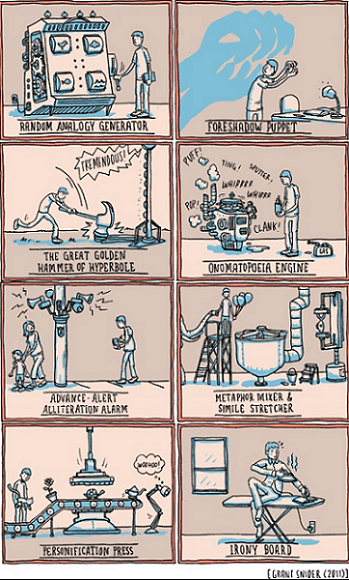 RANDOM ANALOGY GENERATOR
FORESHADOW PUPPET
TREMENDOUS!
THE GREAT GOLDEN
HAMMER OF HYPERBOLE
PUFF!
TING!
SPUTTER!
WHIRRR
WHIRRR
POP!
CLANK!
GAS
ONOMATOPOEIA ENGINE
ADVANCE-ALERT
ALLITERATION ALARM
METAPHOR MIXER &
SIMILE STRETCHER
WOOHOO!
PERSONIFICATION PRESS
IRONY BOARD
[GRANT SNIDER (2011)]